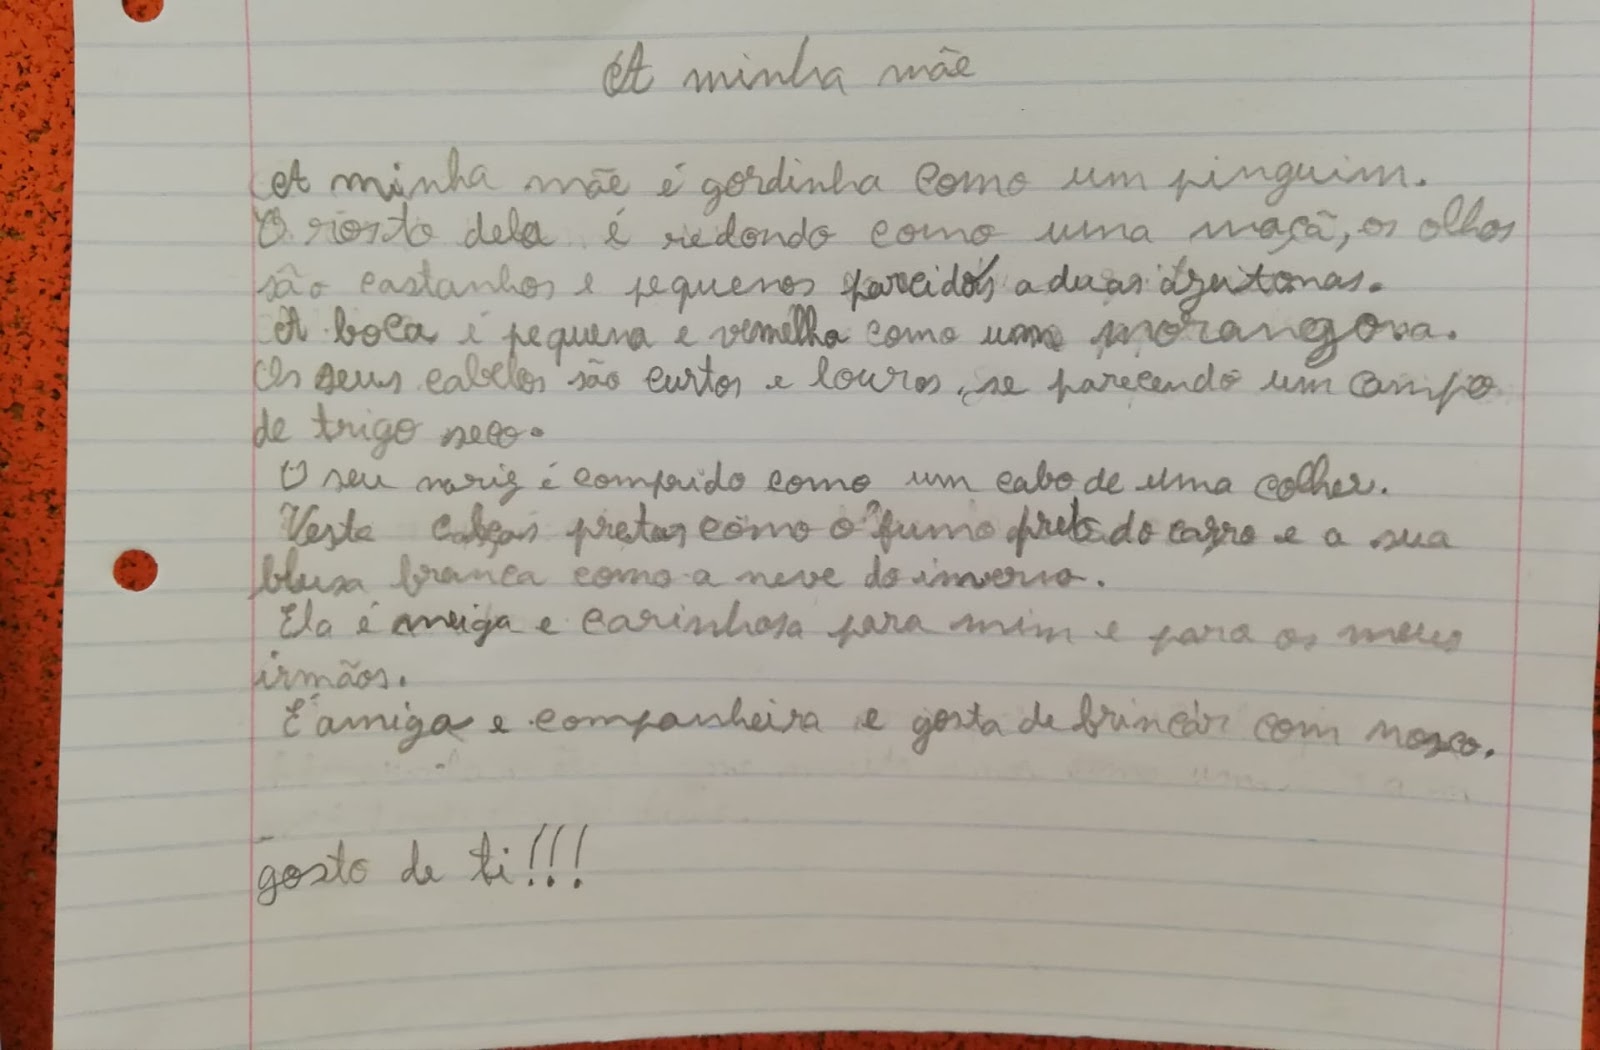 A minha mãe
A minha mãe é gordinha como um pinguim.
O rosto dela é redondo como uma maçã, os olhos
são castanhos e pequenos parcidos a duas azeitonas.
A boca é pequena e vermelha como uma
Os seus cabelos são curtos e louros, se parecendo um campo
de trigo seco.
O seu nariz é comprido como um cabo de uma colher.
Veste calças pretas como o fumo preto do carro e a sua
blusa branca como a neve do inverno.
Ela é meiga e carinhosa para mim e para os meus
irmãos.
É amiga e companheira e gosta de brincar com nosco.
gosto de ti!!!